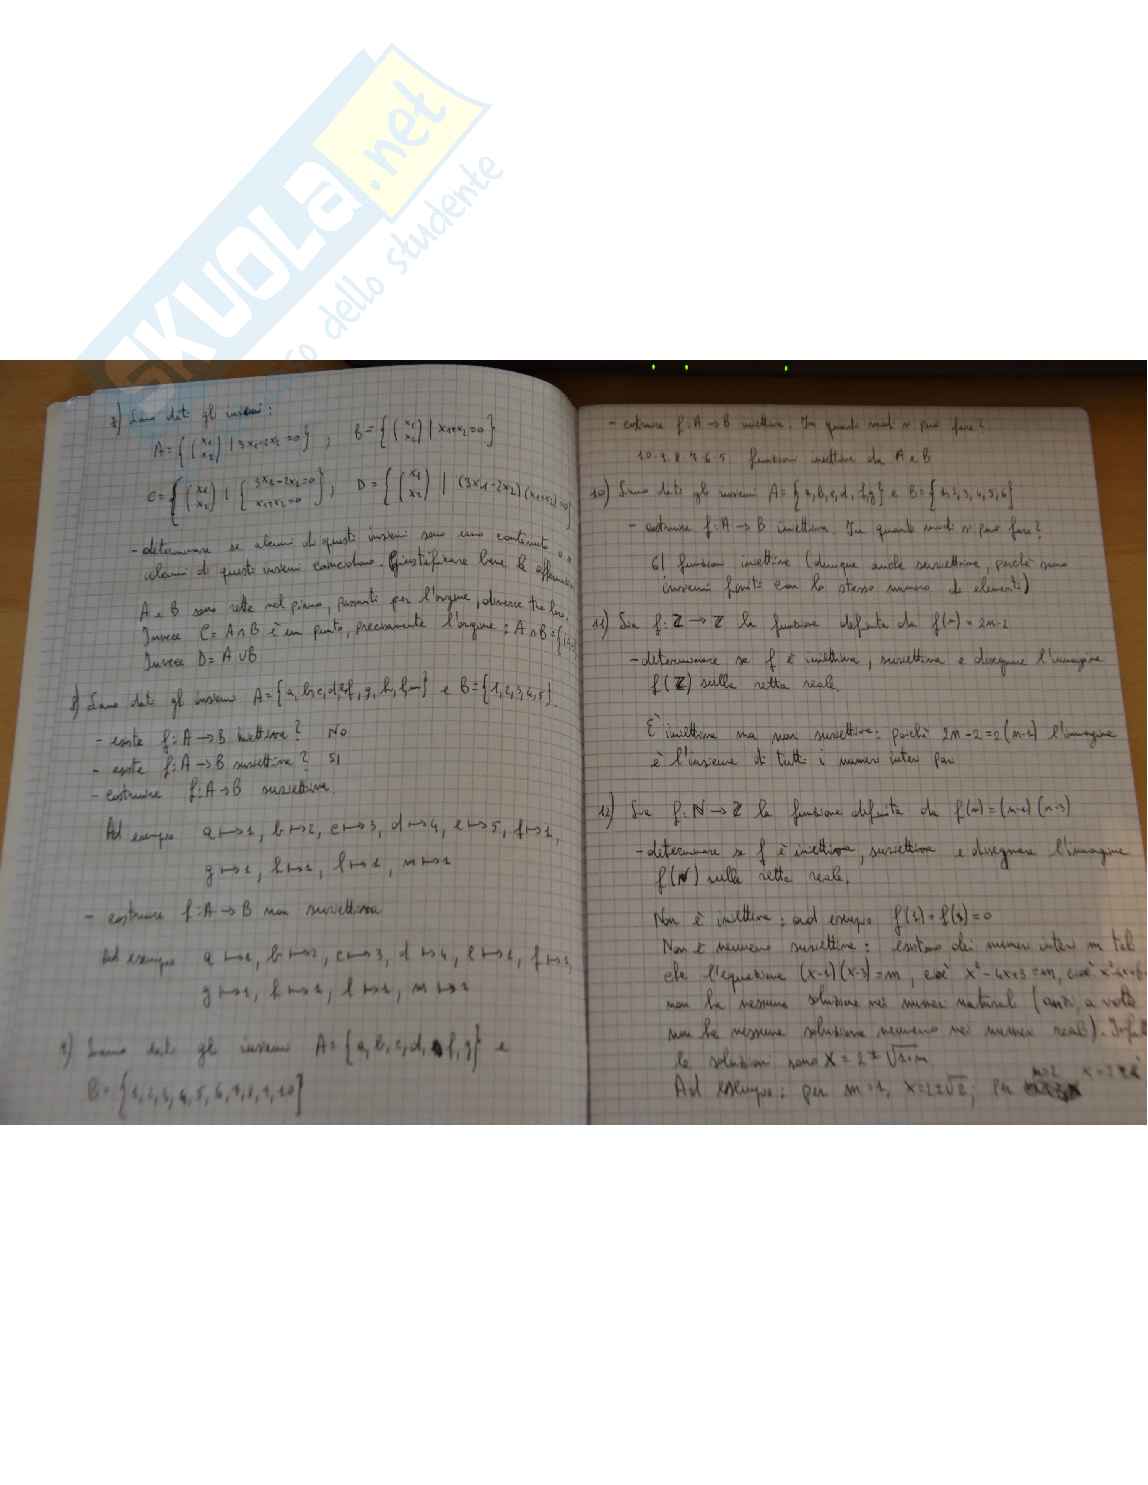 SKUOLA.net
dello studente
7) Siano dati gli insiemi:
A={(x1 x2) | 3x1-2x2=0} ; B={(x1 x2) | x1+x2=0}
C={(x1 x2) | {3x1-2x2=0 x1+x2=0} ; D={(x1 x2) | (3x1-2x2)(x1+x2)=0}
- determinare se alcuni di questi insiemi sono uno contenuto
alcuni di questi insiemi coincidono. Giustificare bene le
A e B sono rette nel piano, passanti per l'origine, diverse tra loro.
Invece C=A∩B è un punto, precisamente l'origine: A∩B=
Invece D=A∪B
8) Siano dati gli insiemi A={a, b, c, d, e, f, g, h, l, m} e B={1,2,3,4,5}.
- esiste f: A→B iniettiva? NO
- esiste f: A→B suriettiva? SI
- costruire f: A→B suriettiva.
Ad esempio a↦1, b↦2, c↦3, d↦4, e↦5, f↦1,
g↦1, h↦1, l↦1, m↦1
- costruire f: A→B non suriettiva
Ad esempio a↦1, b↦2, c↦3, d↦4, e↦1, f↦1,
g↦1, h↦1, l↦1, m↦1
9) Siano dati gli insiemi A={a, b, c, d, f, g} e
B={1,2,3,4,5,6,7,8,9,10}
- costruire f: A→B iniettiva. In quanti modi si può fare?
10·9·8·7·6·5 funzioni iniettive da A e B
10) Siano dati gli insiemi A={a,b,c,d,f,g} e B={1,2,3,4,5,6}
- costruire f: A→B iniettiva. In quanti modi si può fare?
6! funzioni iniettive (dunque anche suriettive, perché sono
insiemi finiti con lo stesso numero di elementi)
11) Sia f: Z→Z la funzione definita da f(n)=2n-2
- determinare se f è iniettiva, suriettiva e disegnare l'immagine
f(Z) sulla retta reale.
È iniettiva ma non suriettiva: poiché 2n-2=2(n-1) l'immagine
è l'insieme di tutti i numeri interi pari
12) Sia f: N→Z la funzione definita da f(n)=(n-1)(n-3)
- determinare se f è iniettiva, suriettiva e disegnare l'immagine
f(N) sulla retta reale.
Non è iniettiva: ad esempio f(1)=f(3)=0
Non è nemmeno suriettiva: esistono dei numeri interi m tali
che l'equazione (x-1)(x-3)=m, cioè x²-4x+3=m, cioè
non ha nessuna soluzione nei numeri naturali (anzi, a volte
non ha nessuna soluzione nemmeno nei numeri reali). Infatti
le soluzioni sono x=2±√1+m
Ad esempio: per m=1, x=2±√2; per m=2